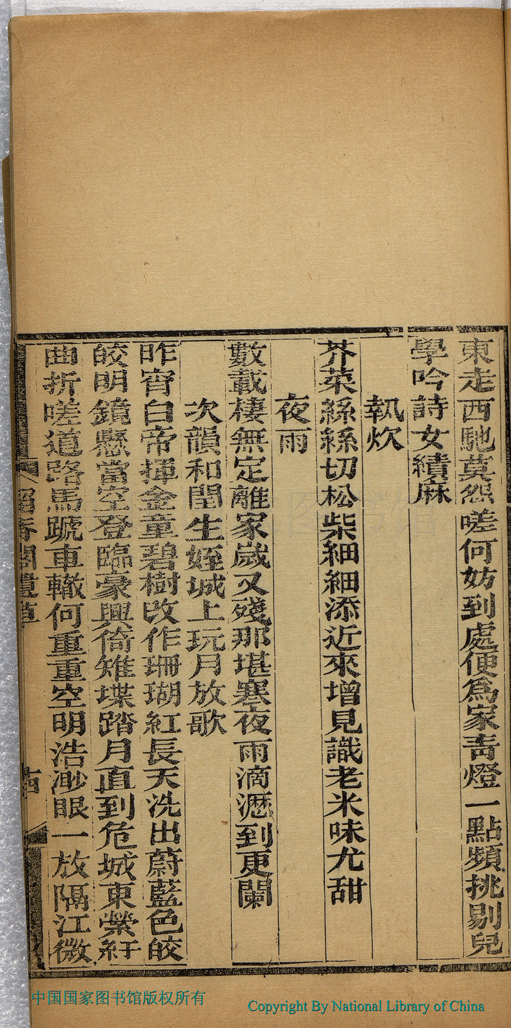 東走西馳莫怨嗟何妨到處便爲家靑燈一點頻挑剔兒
學吟詩女績麻
執炊
芥菜絲絲切松柴細細添近來增見識老米味尤甜
夜雨
數載棲無定離家歲又殘那堪寒夜雨滴瀝到更闌
次韻和閏生姪城上玩月放歌
昨宵白帝揮金童碧樹改作珊瑚紅長天洗出蔚藍色皎
皎明鏡懸當空登臨豪興倚雉堞踏月直到危城東縈紆
曲折嗟道路馬蹏車轍何重重空明浩渺眼一放隔江微
香閣遺草
中国国家图书馆版权所有
Copyright By National Library of China